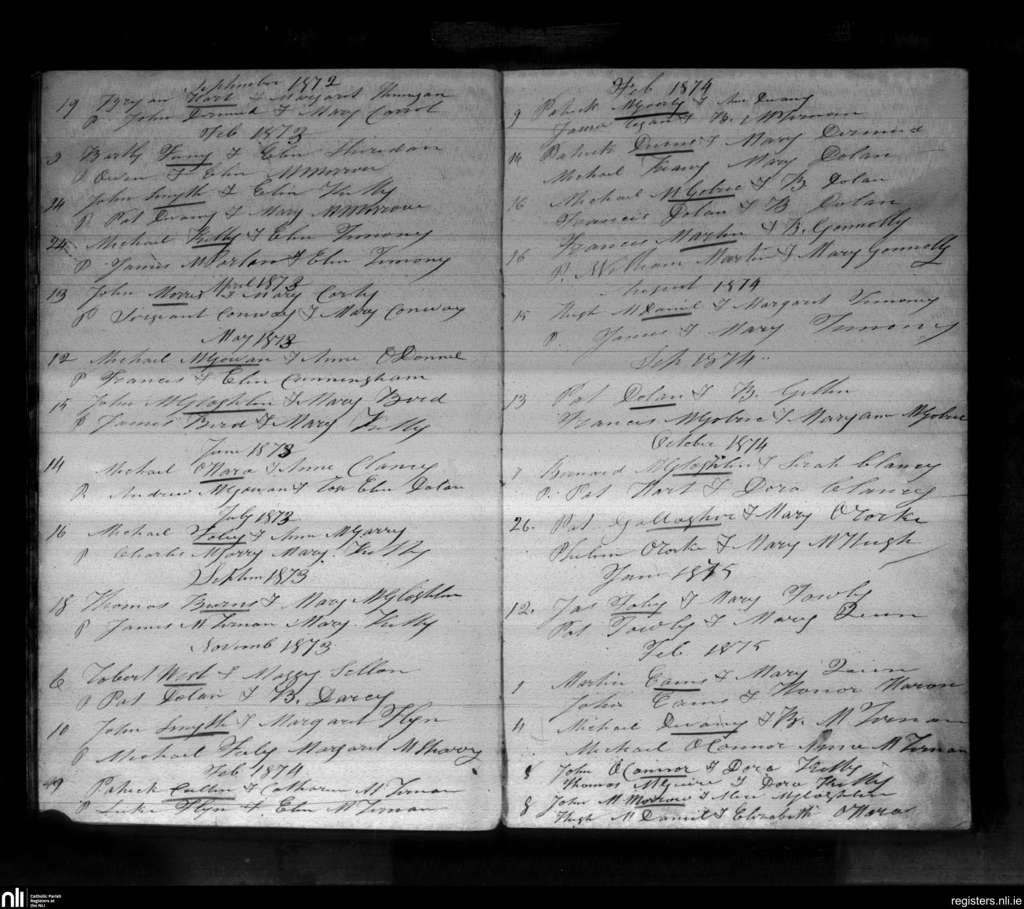 September 1872
19 Bryan Hart & Margaret Finnegan
P John Dermid & Mary Carrol
Feb 1873
3 Bartly & Elin Sheridan
P Owen & Elin McMorrow
24 John Smyth & Elin Kelly
P Pat & Mary McMorrow
24 Michael Kelly & Elin Timony
P James McParlan & Elin Timony
April 1873
13 John Morris & Mary Corly
P Sergeant Conway & Mary Conway
May 1873
12 Michael McGowan & Anne O'Donnel
P Francis & Elin Cunningham
15 John McGloghlin & Mary Bird
P James Bird & Mary Kelly
June 1873
14 Michael O'Hara & Anne Clancy
P. Andrew McGowan & Elin Dolan
July 1873
16 Michael Foley & Ann McGarry
P Charles McGarry Mary Kelly
Septem 1873
18 Thomas Burns & Mary McGloghlin
P James McTernan & Mary Kelly
Novemb 1873
6 Robert West & Maggy Sellon
P Pat Dolan & B. Darcy
10 John Smyth & Margaret Flyn
P Michael Margaret McSharry
Feb 1874
9 Patrick Cullin & Catharine McTernan
P. Luke Flyn & Elin McTernan
Feb 1874
9 Patrick McGourty & Ann
James & B. McTernan
14 Patrick & Mary Dermid
Michael Mary Dolan
16 Michael McGobric & B Dolan
Francis Dolan & B Dolan
16 Francis Martin & B. Connolly
P. William Martin & Mary Connolly
August 1874
15 Hugh McDaniel & Margaret Timony
P. James & Mary Timony
Sep 1874
13 Pat Dolan & B. Gillin
Francis McGobric & Maryann McGobric
October 1874
7 Bernard McGloghlin & Sarah Clancy
P. Pat Hart & Dora Clancy
26. Pat Gallagher & Mary O'Rorke
Phelim O'Rorke & Mary McHugh
Jan 1875
12. Jas Foley & Mary
Pat & Mary Quinn
Feb 1875
1 Martin Eams & Mary Quinn
John Eams & Honor Haron
4 Michael & B. McTernan
Michael O'Connor Anne McTernan
8 John O'Connor & Dora Kelly
Thomas McGuire & Dora Kelly
8 John McMorrow & McGloghlin
Hugh McDaniel & Elizabeth O'Hara
nli
Catholic Parish
Registers at
the NLI
registers.nli.ie